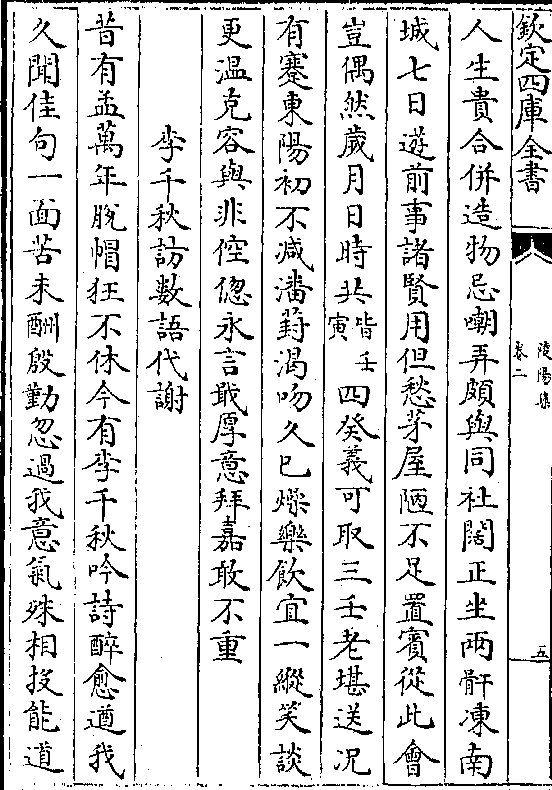 欽定四庫全書
陵陽集
卷二
五
人生貴合併造物忌嘲弄頗與同社闊正坐兩骭凍南
城七日遊前事諸賢用但愁茅屋陋不足置賓從此會
豈偶然歲月日時共皆壬寅四癸義可取三壬老堪送况
有蹇東陽初不减潘葑渴吻久已燥樂飲宜一縱笑談
更溫克容與非倥偬永言戢厚意拜嘉敢不重
李千秋訪數語代謝
昔有孟萬年脫帽狂不休今有李千秋吟詩醉愈遒我
久聞佳句一面苦未酬殷勤忽過我意氣殊相投能道